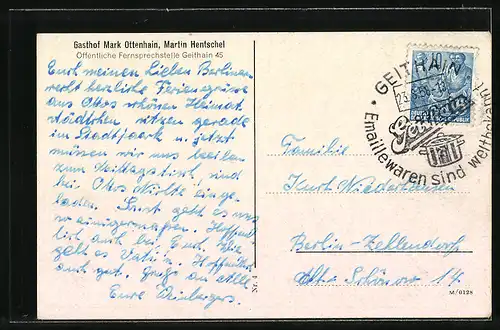 Gasthof Mark Ottenhain, Martin Hentschel
Öffentliche Fernsprechstelle Geithain 45
Euch meinen Lieben Berlinern
recht herzliche Feriengrüsse
aus Ottos schönen Heimat
städtchen sitzen gerade
im Stadtpark u. jetzt
müssen wir uns beeilen
zum Mittagstisch, sind
bei Ottos Nichte einge-
laden. Sonst geht es uns
so einigermaßen. Hoffent-
lich auch bei Euch. Wie
geht es Vati? Hoffentlich
auch gut. Gruß an Alle
Eure
Nr. 1
GEITHAIN
23.
Geithainer
Emaillewaren sind weltbekannt
Familie
Kurt
Berlin-Zehlendorf
Alt Schönow 14.
M/0128